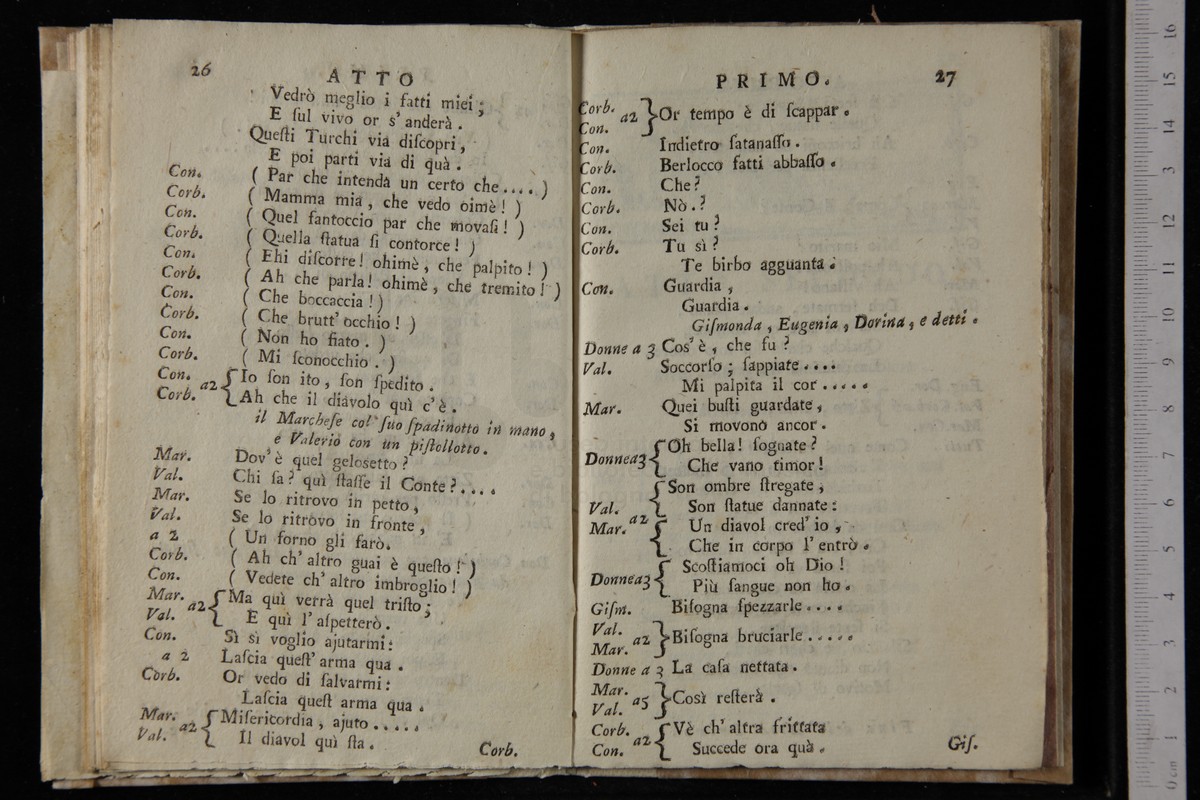 26 ATTO
Vedrò meglio i fatti miei;
E ſul vivo or s' anderà.
Queſti Turchi via diſcopri,
E poi parti via di quà.
Con. ( Par che intenda un certo che.... )
Corb. ( Mamma mia, che vedo oimè! )
Con. ( Quel fantoccio par che movaſi! )
Corb. ( Quella ſtatua ſi contorce! )
Con. ( Ehi diſcorre! ohimè, che palpito! )
Corb. ( Ah che parla! ohimè, che tremito! )
Con. ( Che boccaccia! )
Corb. ( Che brutt' occhio! )
Con. ( Non ho fiato. )
Corb. ( Mi ſconocchio. )
Con. a2 { Io ſon ito, ſon ſpedito.
Corb. Ah che il diavolo quì c'è.
il Marcheſe col ſuo ſpadinotto in mano,
e Valerio con un piſtollotto.
Mar. Dov' è quel geloſetto?
Val. Chi ſa? quì ſtaſſe il Conte?....
Mar. Se lo ritrovo in petto,
Val. Se lo ritrovo in fronte,
a 2 ( Un forno gli farò.
Corb. ( Ah ch' altro guai è queſto! )
Con. ( Vedete ch' altro imbroglio! )
Mar. a2 { Ma quì verrà quel triſto;
Val. E quì l' aſpetterò.
Con. Sì sì voglio ajutarmi:
a 2 Laſcia queſt' arma qua.
Corb. Or vedo di ſalvarmi:
Laſcia queſt arma qua.
Mar. a2 { Miſericordia, ajuto.....
Val. Il diavol quì ſta.
Corb.
PRIMO. 27
Corb. a2 } Or tempo è di ſcappar.
Con.
Con. Indietro ſatanaſſo.
Corb. Berlocco fatti abbaſſo.
Con. Che?
Corb. Nò.?
Con. Sei tu?
Corb. Tu sì?
Te birbo agguanta.
Con. Guardia,
Guardia.
Giſmonda, Eugenia, Dorina, e detti.
Donne a 3 Cos' è, che fu?
Val. Soccorſo; ſappiate....
Mi palpita il cor.....
Mar. Quei buſti guardate,
Si movono ancor.
Donnea3 { Oh bella! ſognate?
Che vano timor!
Val. a2 { Son ombre ſtregate,
Son ſtatue dannate:
Mar. { Un diavol cred' io,
Che in corpo l' entrò.
Donnea3 { Scoſtiamoci oh Dio!
Più ſangue non ho.
Giſm. Biſogna ſpezzarle....
Val. a2 } Biſogna bruciarle.....
Mar.
Donne a 3 La caſa nettata.
Mar. a5 } Così reſterà.
Val.
Corb. a2 { Vè ch' altra frittata
Con. Succede ora quà.
Giſ.